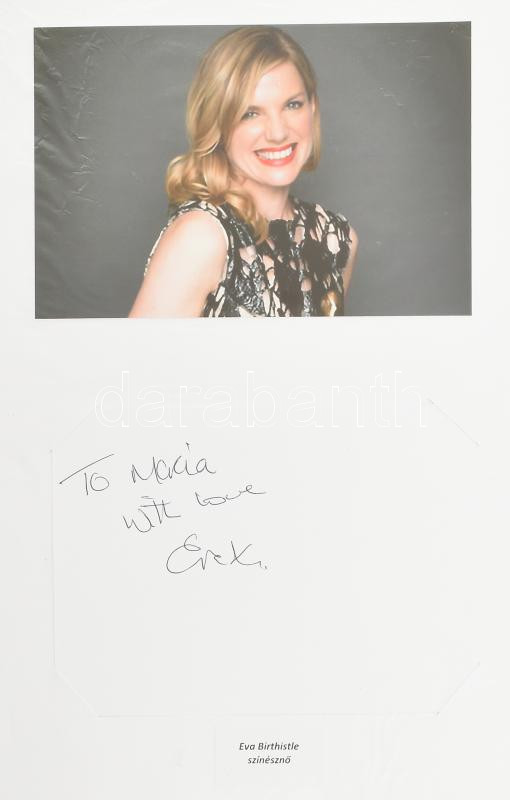 darabanth
To Maria
with love
Eva x.
Eva Birthistle
színésznő